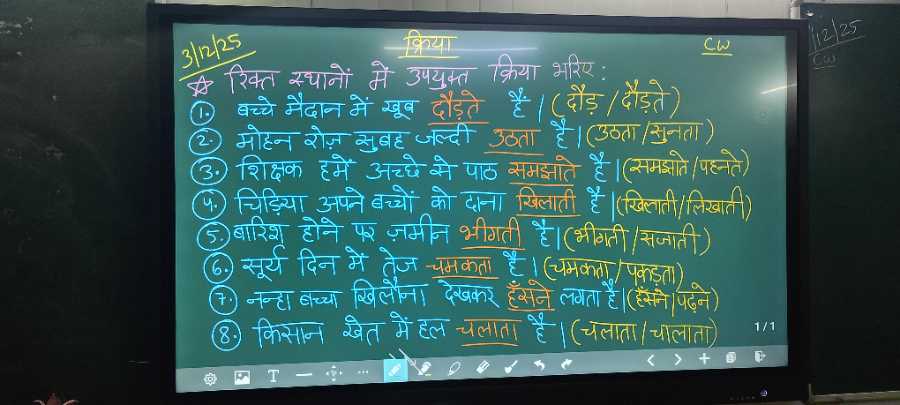 3/12/25
क्रिया
CW
☆ रिक्त स्थानों में उपयुक्त क्रिया भरिए :
1. बच्चे मैदान में खूब दौड़ते हैं | (दौड़ / दौड़ते)
2. मोहन रोज़ सुबह जल्दी उठता है | (उठता / सुनता)
3. शिक्षक हमें अच्छे से पाठ समझाते हैं | (समझाते / पहनते)
4. चिड़िया अपने बच्चों को दाना खिलाती है | (खिलाती / लिखाती)
5. बारिश होने पर ज़मीन भीगती है | (भीगती / सजाती)
6. सूर्य दिन में तेज चमकता है | (चमकता / पकड़ता)
7. नन्हा बच्चा खिलौना देखकर हँसने लगता है | (हँसने / पढ़ने)
8. किसान खेत में हल चलाता है | (चलाता / चालाता)
1/1
T
/12/25
CW